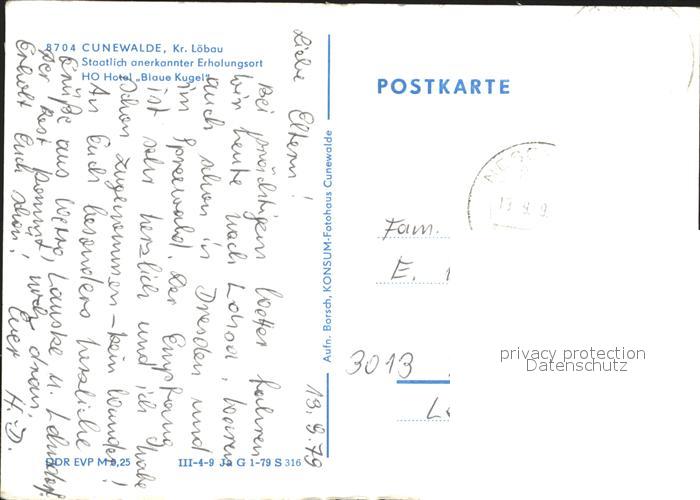 8704 CUNEWALDE, Kr. Löbau
Staatlich anerkannter Erholungsort
HO Hotel „Blaue Kugel"
Liebe Eltern!
13.9.79
Bei prächtigem Wetter fahren
wir heute nach Lohsa, waren
auch schon in Dresden und
im Spreewald. Der Empfang
ist sehr herzlich und ich habe
schon zugenommen – kein Wunder!
An Euch besonders herzliche
Grüße aus Lauske u.
Der Rest kommt noch dran.
Erholt Euch schön! Euer H. D.
DDR EVP M 0,25
III-4-9 Ja G 1-79 S 316
Aufn. Borsch, KONSUM-Fotohaus Cunewalde
POSTKARTE
Fam.
E.
3013
privacy protection
Datenschutz